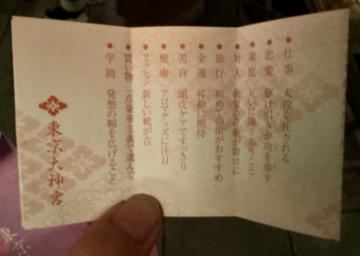 ・仕事 大役を任される
・恋愛 駆け引きが功を奏す
・家庭
・対人
・旅行 初めての街がおすすめ
・金運 昇給に期待
・美容 頭皮ケアですっきり
・健康 アロマグッズに注目
・ファッション 新しい靴が吉
・買い物 一点豪華主義で選んで
・学問 発想の幅を広げること
東京大神宮